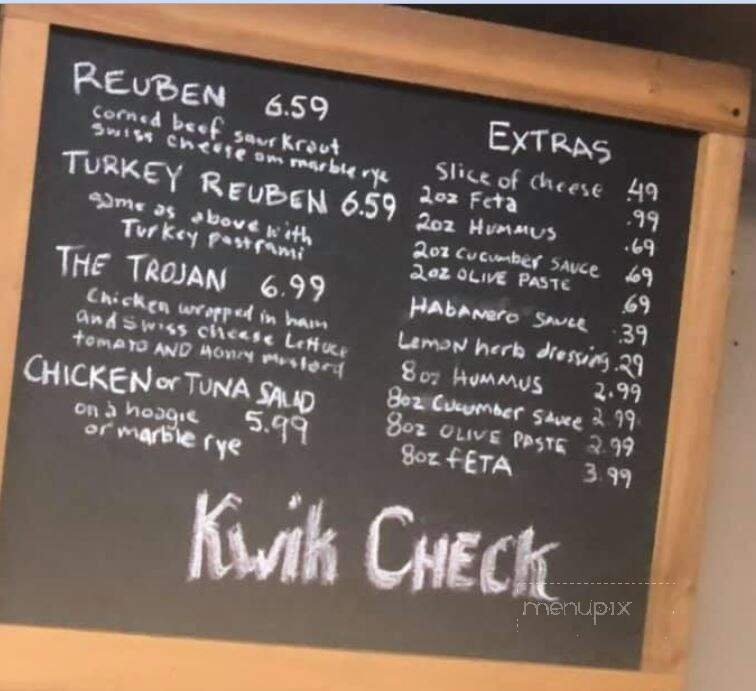 REUBEN 6.59
corned beef saurkraut
swiss cheese on marble rye
TURKEY REUBEN 6.59
same as above with
Turkey pastrami
THE TROJAN 6.99
Chicken wrapped in ham
and swiss cheese LeTTuce
tomaTO AND Honey mustard
CHICKEN or TUNA SALAD
on a hoagie 5.99
or marble rye
EXTRAS
slice of cheese .49
2oz Feta .99
2oz HUMMUS .69
2oz cucumber SAUCE .69
2oz OLIVE PASTE .69
HAbANero SAUCE .39
Lemon herb dressing .29
8oz HUMMUS 2.99
8oz Cucumber Sauce 2.99
8oz OLIVE PASTE 2.99
8oz fETA 3.99
Kwik CHECK
menupix